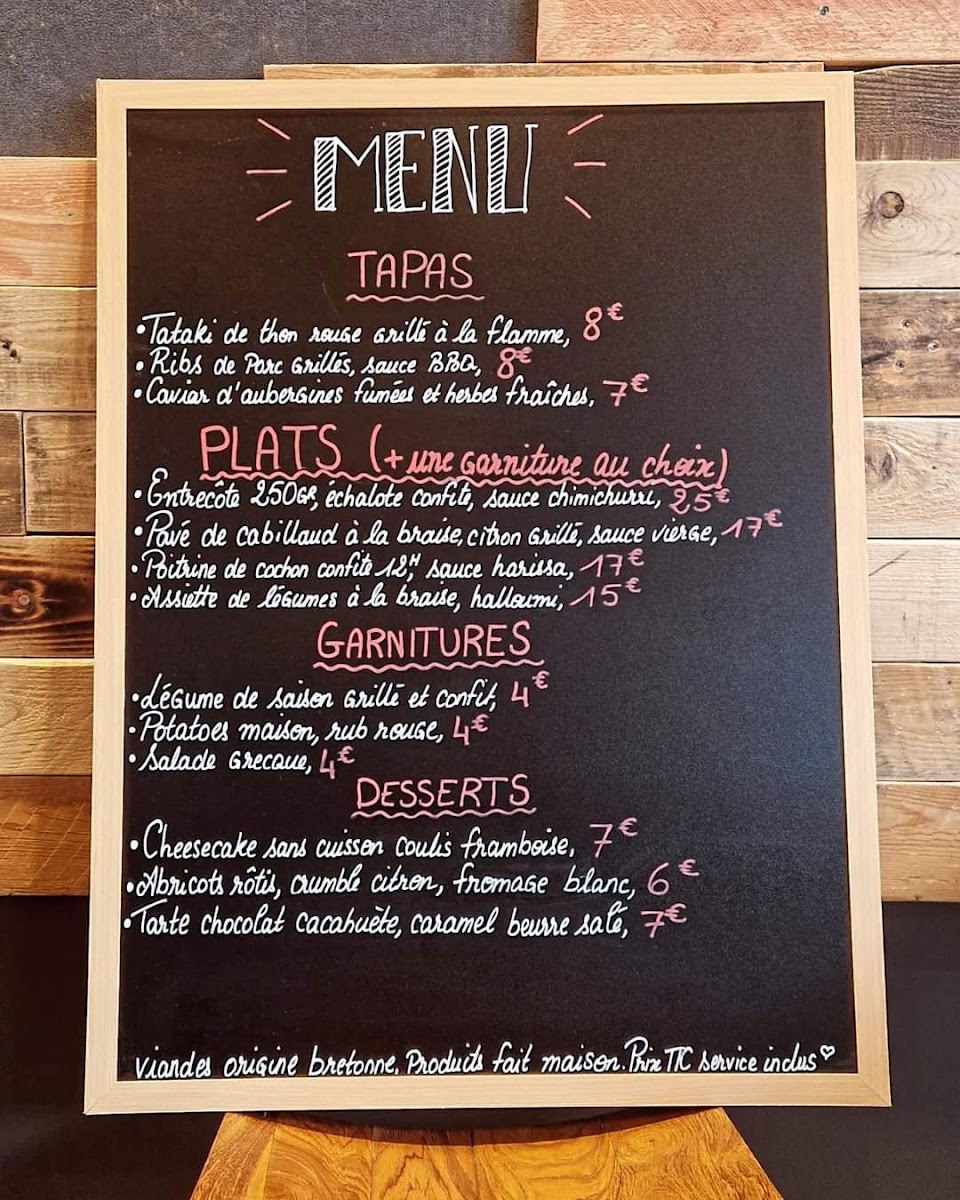 MENU
TAPAS
•Tataki de thon rouge grillé à la flamme, 8€
•Ribs de Porc Grillés, sauce BBQ, 8€
•Caviar d'aubergines fumées et herbes fraîches, 7€
PLATS (+ une garniture au choix)
•Entrecôte 250GR, échalote confite, sauce chimichurri, 25€
•Pavé de cabillaud à la braise, citron grillé, sauce vierge, 17€
•Poitrine de cochon confite 12H, sauce harissa, 17€
•Assiette de légumes à la braise, halloumi, 15€
GARNITURES
•Légume de saison grillé et confit, 4€
•Potatoes maison, rub rouge, 4€
•Salade Grecque, 4€
DESSERTS
•Cheesecake sans cuisson coulis framboise, 7€
•Abricots rôtis, crumble citron, fromage blanc, 6€
•Tarte chocolat cacahuète, caramel beurre salé, 7€
viandes origine bretonne. Produits fait maison. Prix TTC service inclus♡